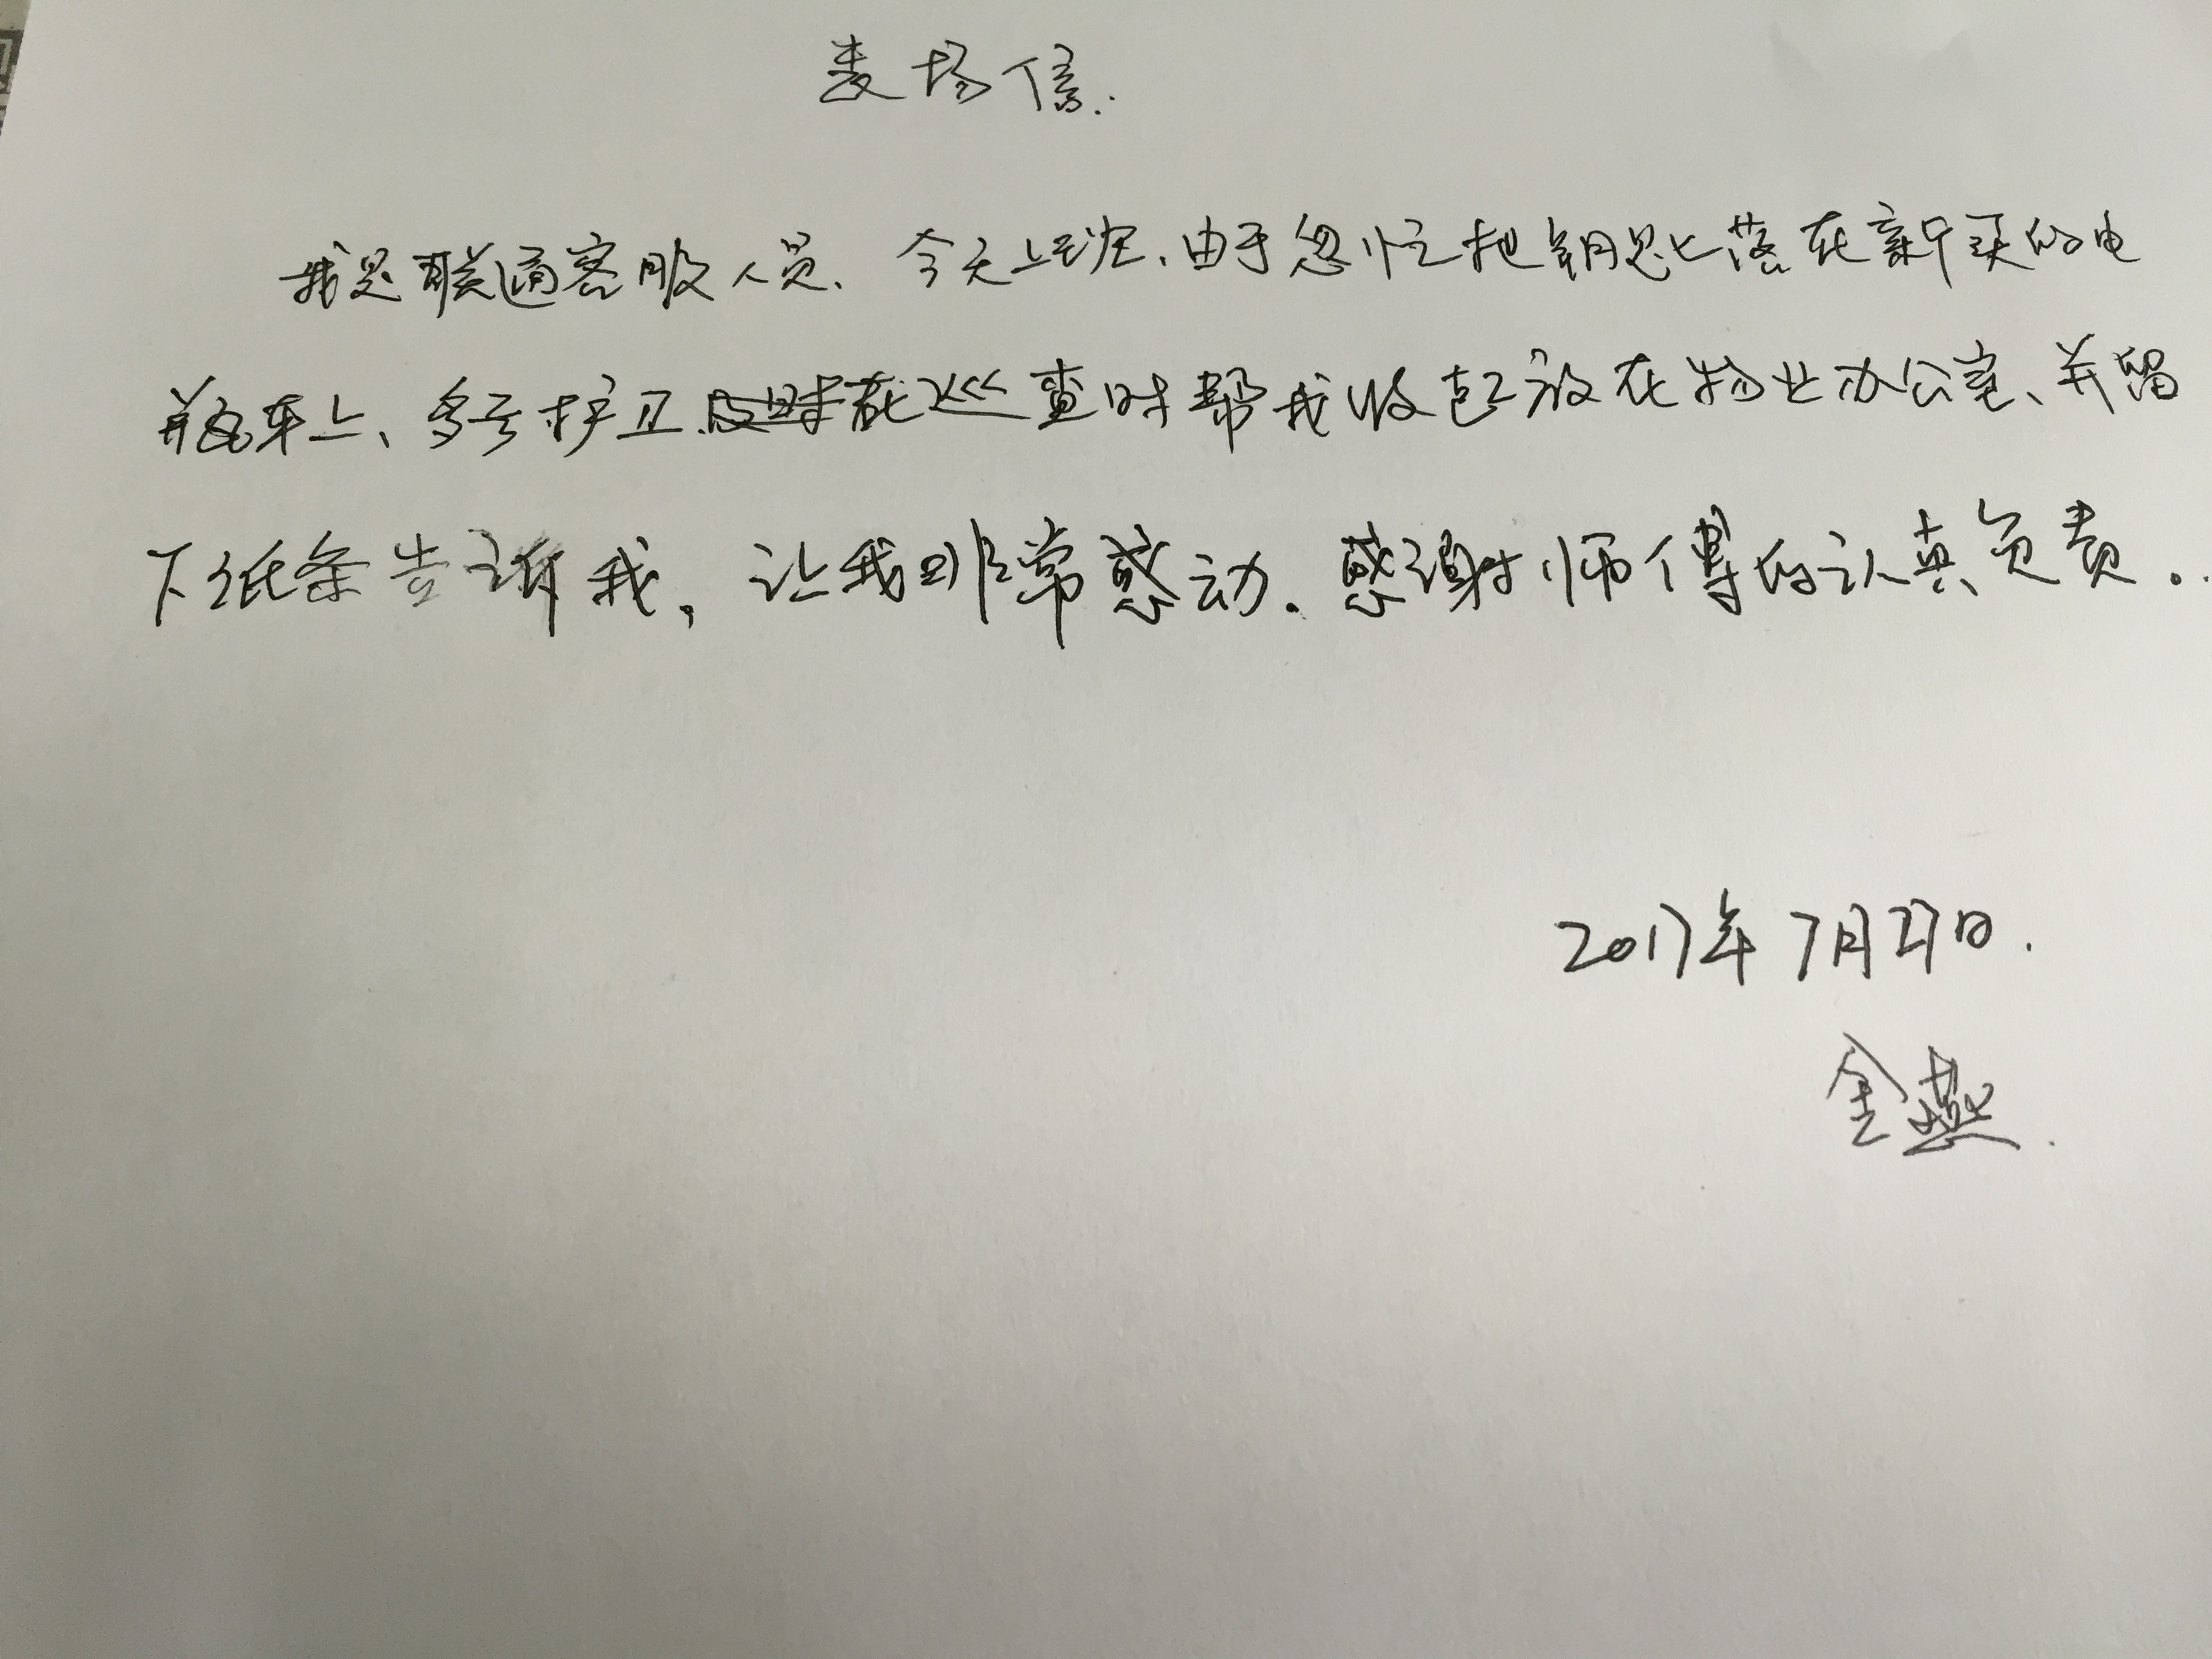 表扬信.
我是联通客服人员、今天上班、由于忽忙把钥匙落在新买的电
瓶车上、多亏护卫在巡查时帮我收起放在物业办公室、并留
下纸条告诉我，让我非常感动．感谢师傅的认真负责。
2017年7月27日.
金燕.